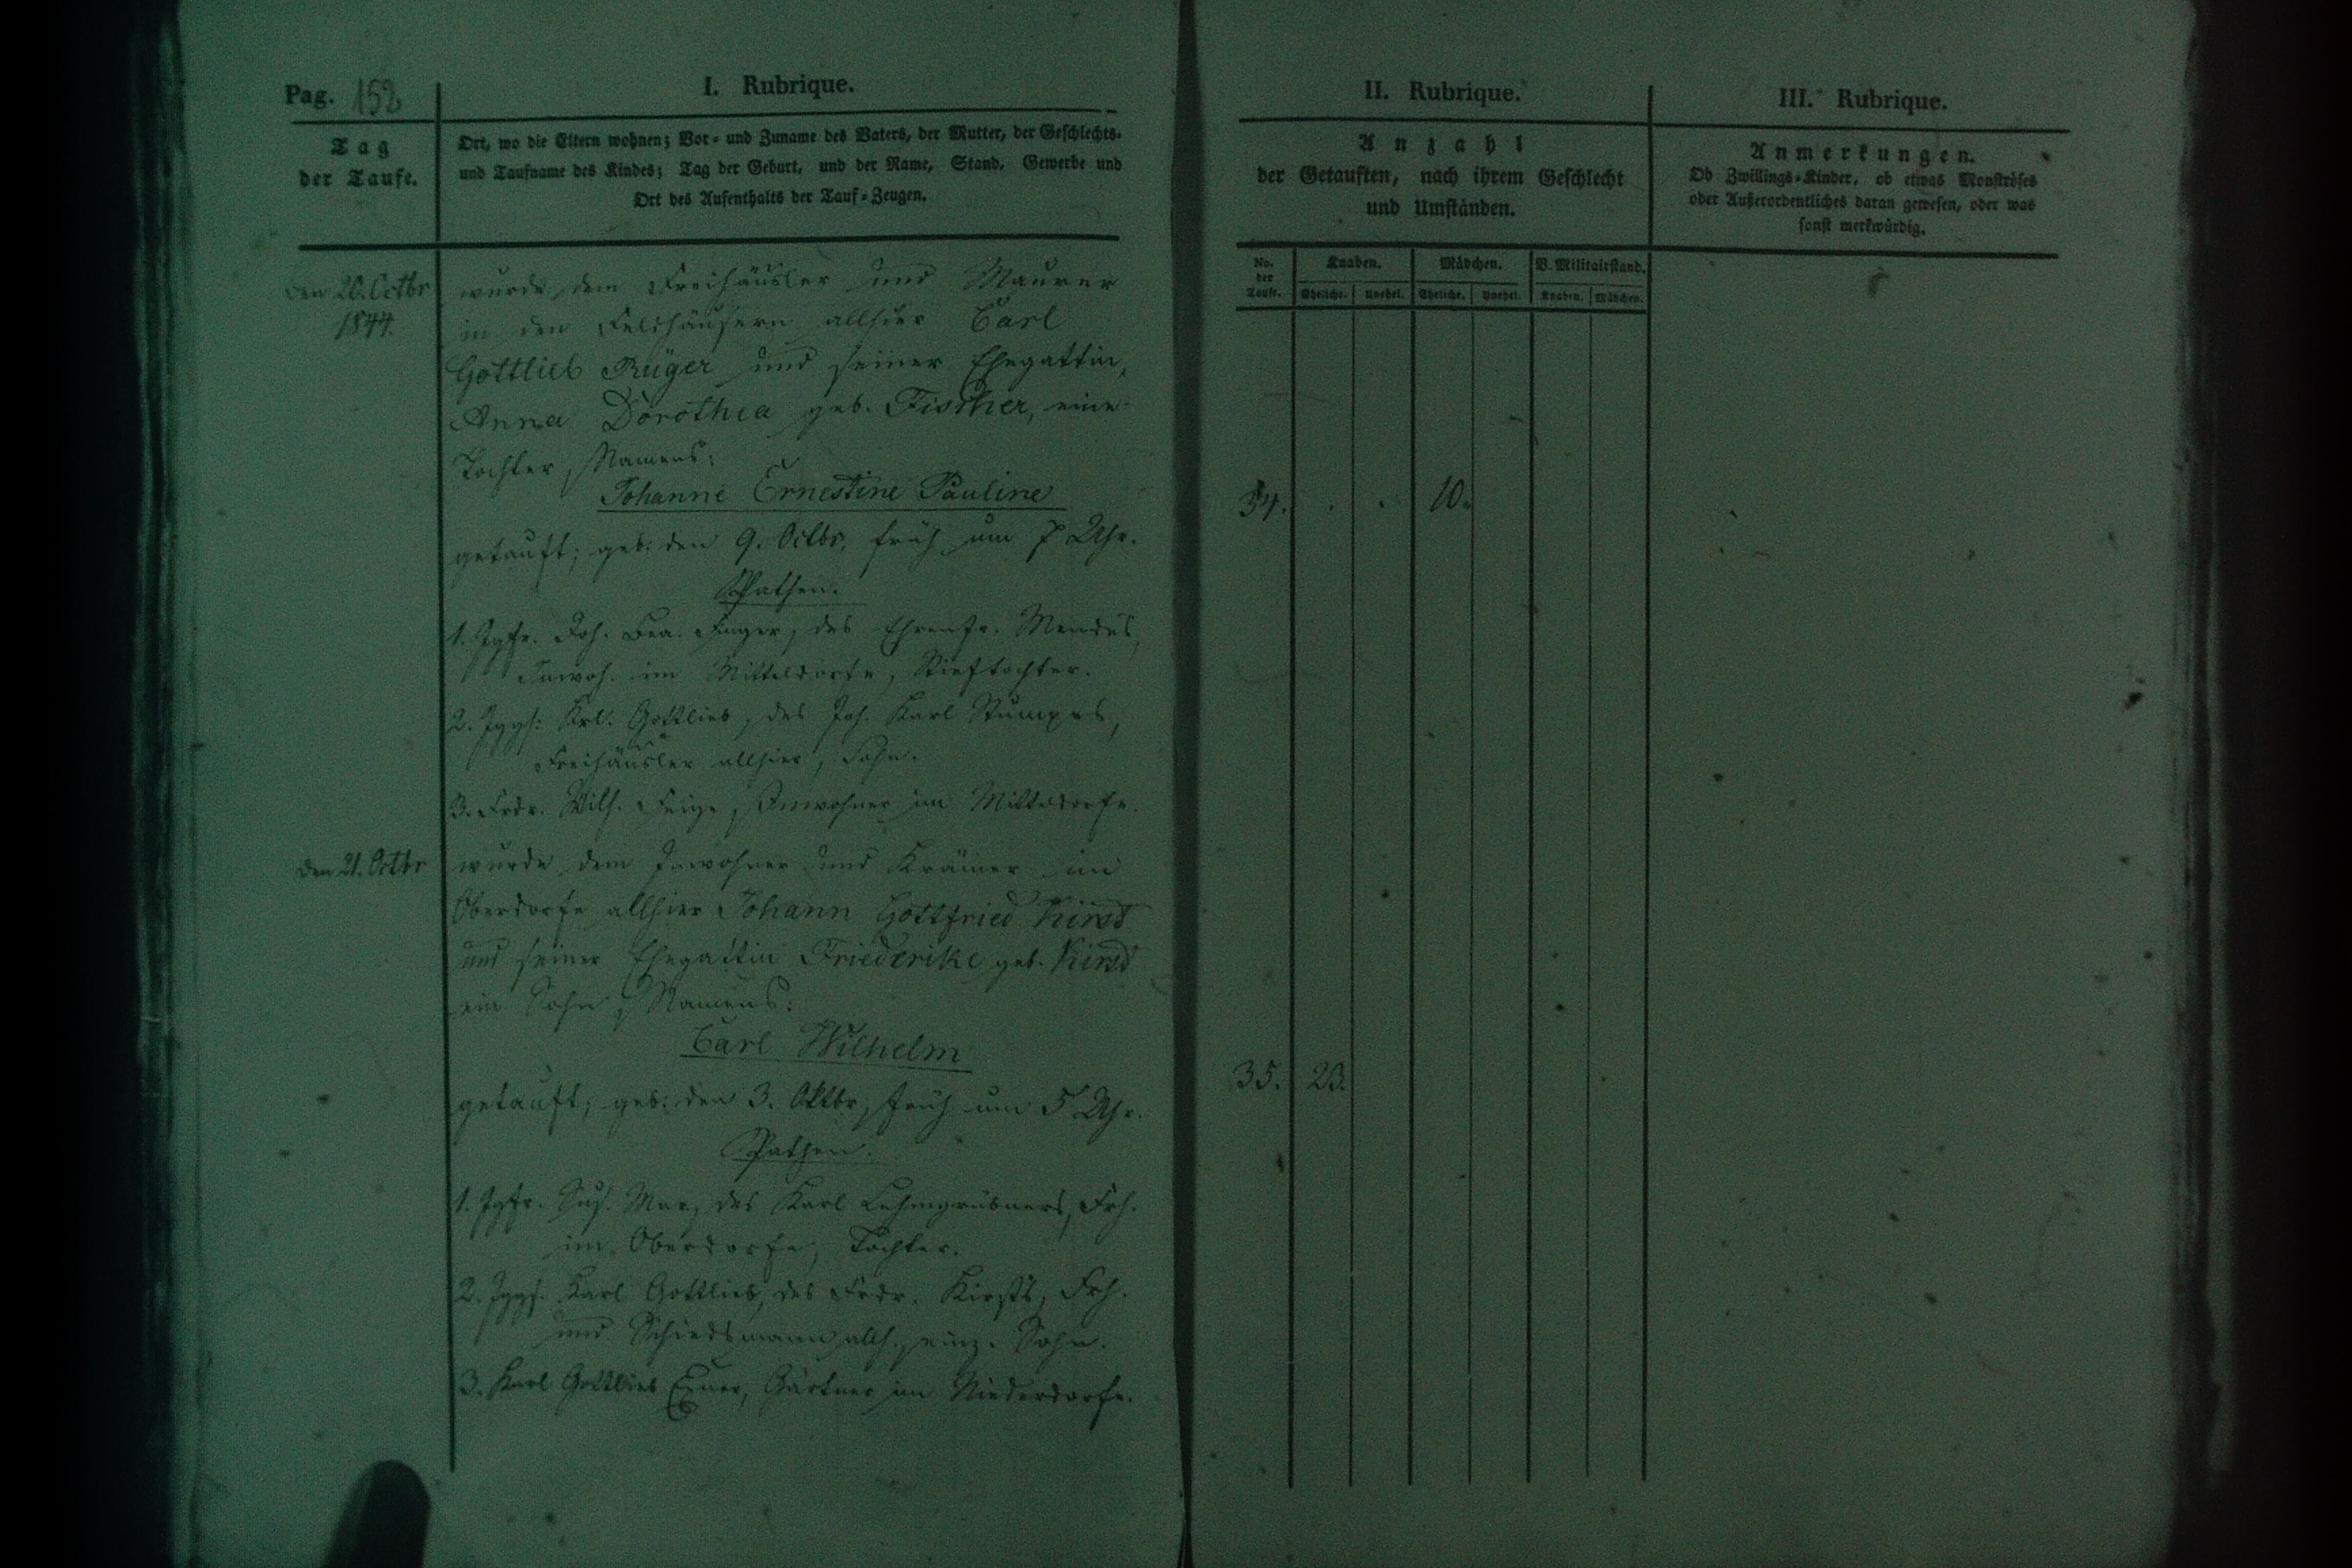 Pag. 152
I. Rubrique.
Tag
der Taufe.
Ort, wo die Eltern wohnen; Vor- und Zuname des Vaters, der Mutter, der Geschlechts-
und Taufname des Kindes; Tag der Geburt, und der Name, Stand, Gewerbe und
Ort des Aufenthalts der Tauf-Zeugen.
den 20. Octbr
1844.
wurde dem Freihäusler und Maurer
in den Feldhäusern allhier Carl
Gottlieb Rüger und seiner Ehegattin,
Anna Dorothea geb. Fischer, eine
Tochter, Namens:
Johanne Ernestine Pauline
getauft; geb. den 9. Octbr, früh um 7 Uhr.
Pathen.
1. Jgfr. Joh. Bea. des Ehrenfr.
Inwoh. im Mitteldorfe, Stieftochter.
2. Jggs. Krl. Gottlieb, des Joh. Karl
Freihäusler allhier, Sohn.
3. Frdr. Wilh. Feige, Inwohner im Mitteldorfe.
den 21. Octbr
wurde dem Inwohner und Krämer im
Oberdorfe allhier Johann Gottfried Kirst
und seiner Ehegattin Friederike geb. Kirst
ein Sohn, Namens:
Carl Wilhelm
getauft; geb. den 3. Oktbr, früh um 5 Uhr.
Pathen.
1. Jgfr. Sus. Mar, des Karl Lehmgrübners, Frh.
im Oberdorfe, Tochter.
2. Jggs. Karl Gottlieb, des Frdr. Kirsts, Frh.
und Schiedsmann allh., einz. Sohn.
3. Karl Gottlieb Exner, Gärtner im Niederdorfe.
II. Rubrique.
Anzahl
der Getauften, nach ihrem Geschlecht
und Umständen.
No.
der
Taufe.
Knaben. Mädchen. V. Militairstand.
Eheliche. Unehel. Eheliche. Unehel. Knaben. Mädchen.
34. . . 10.
35. 23.
III. Rubrique.
Anmerkungen.
Ob Zwillings-Kinder, ob etwas Monströses
oder Außerordentliches daran gewesen, oder was
sonst merkwürdig.